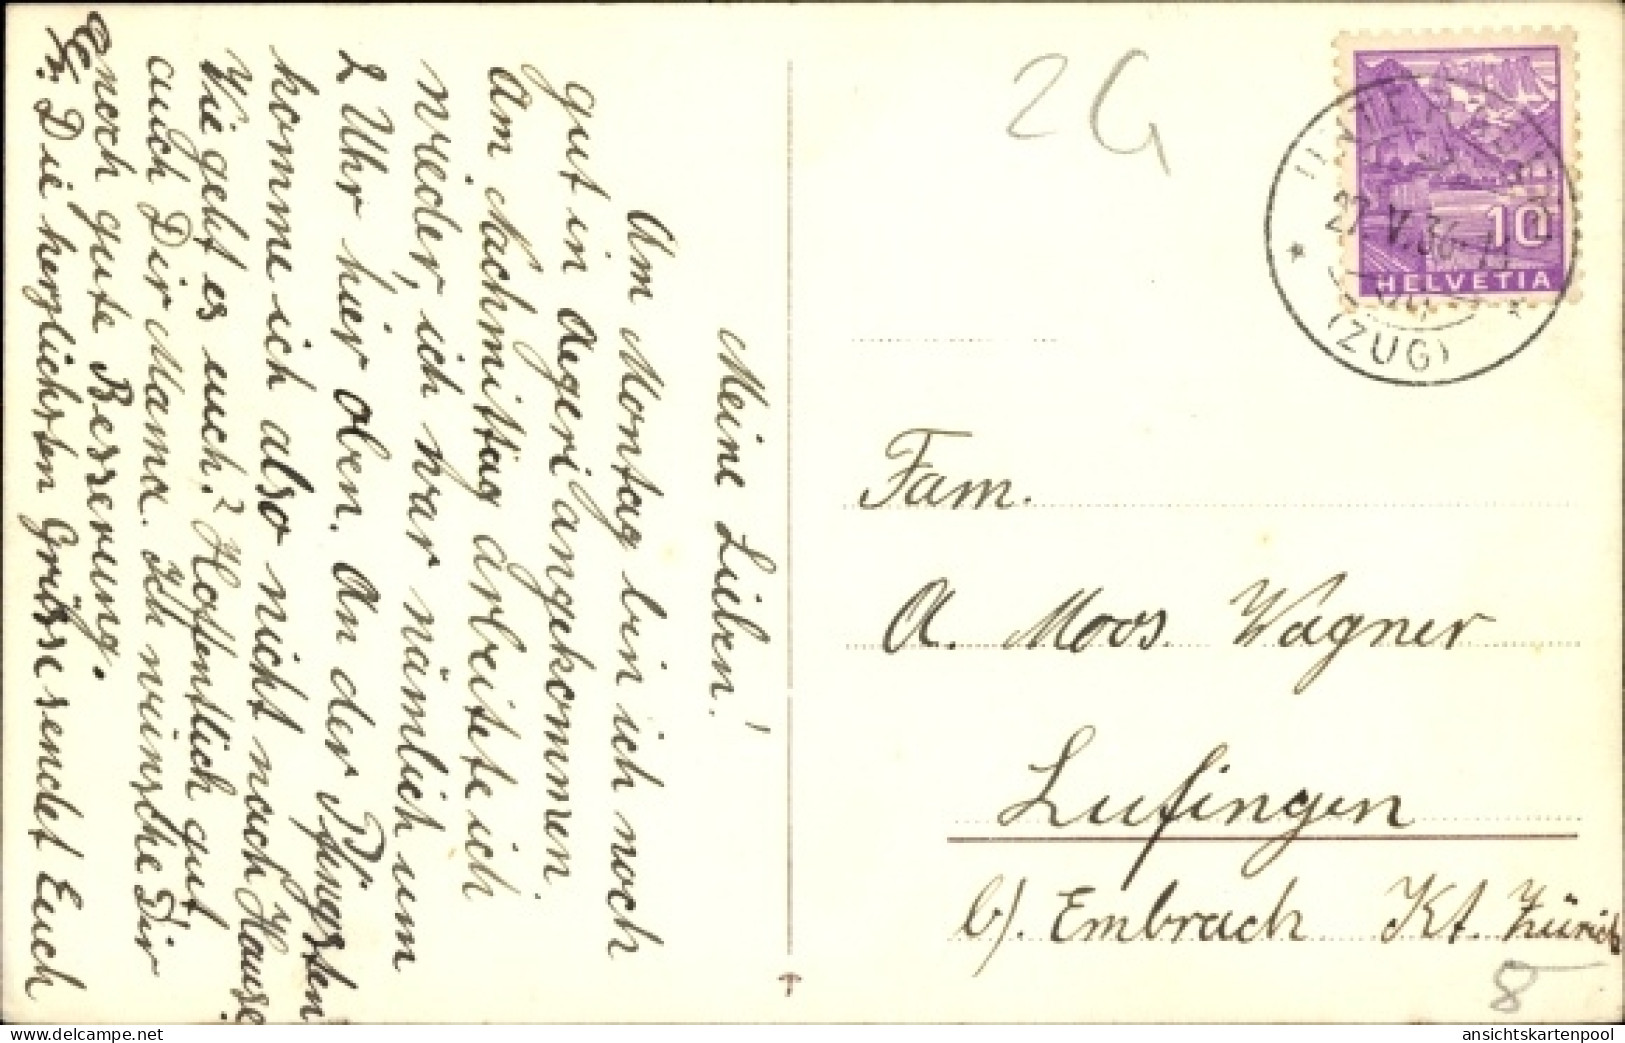 Meine Lieben!
Am Montag bin ich noch
gut in Aegeri angekommen
Am Nachmittag arbeitete ich
wieder, ich war nämlich um
2 Uhr hier oben. An der Pfingsten
komme ich also nicht nach Hause
Wie geht es euch? Hoffentlich gut
auch Dir Mama. Ich wünsche Dir
noch gute Besserung.
Die herzlichsten Grüsse sendet Euch
2G
UNTER
27.V.36
(ZUG)
10
HELVETIA
Fam.
A. Moos Wagner
Lufingen
b/. Embrach Kt. Zürich
8
ansichtskartenpool